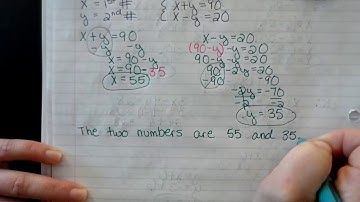 x = 1st #
y = 2nd #
{ x + y = 90
{ x - y = 20
x + y = 90
-y -y
x = 90 - y
x = 90 - 35
x = 55
x - y = 20
(90-y) - y = 20
90 - y - y = 20
90 - 2y = 20
-90 -90
-2y = -70
-2 -2
y = 35
The two numbers are 55 and 35.